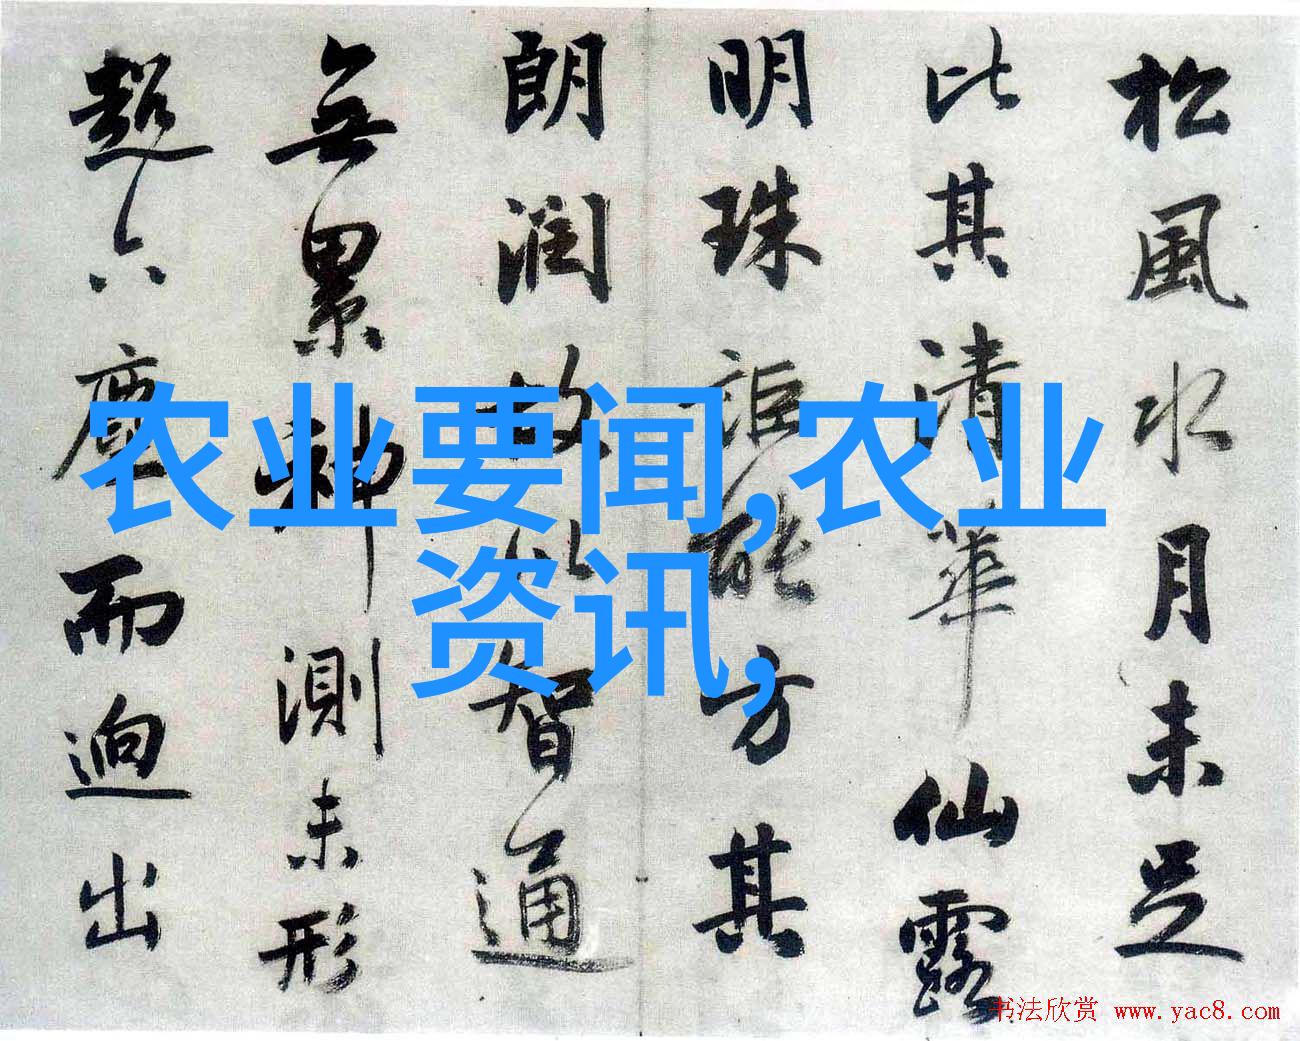 松風水月未足
比其清華仙露
明珠詎能方其
朗潤故以智通
無累神測未形
超六塵而迥出
农业要闻,农业
资讯,
书法欣赏 www.yac8.com